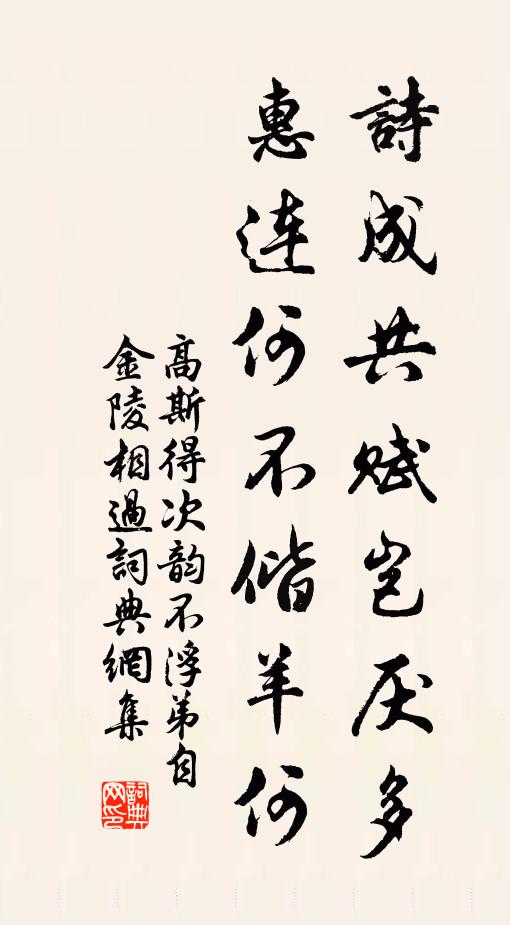 詩成共赋岂厌多
惠连何不偕羊何
高斯得次韵不浮弟自
金陵相過詞典網集
詞典
网印